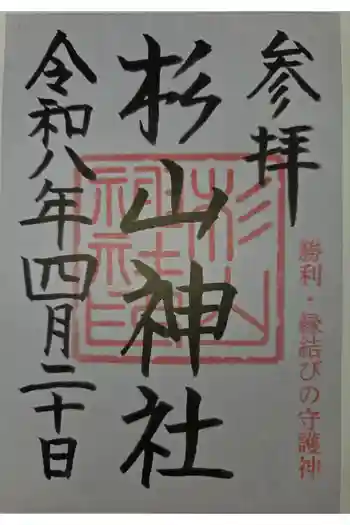 参拝
勝利・縁結びの守護神
杉山神社
令和八年四月二十日